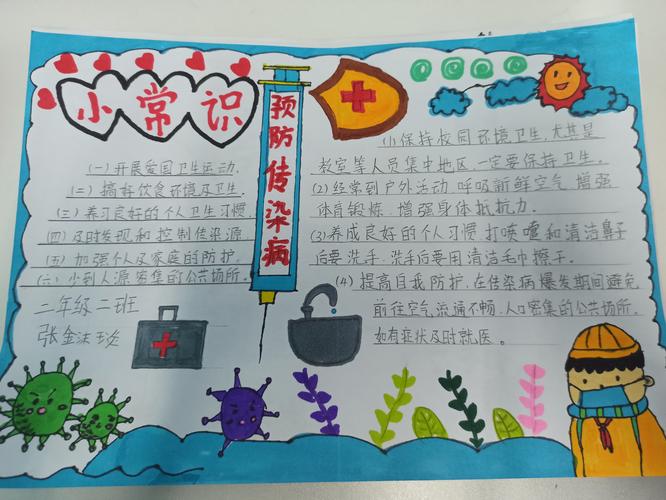 小常识
(一)开展爱国卫生运动.
(二)搞好饮食环境及卫生.
(三)养习良好的个人卫生习惯.
(四)及时发现和控制传染源.
(五)加强个人及家庭的防护.
(六)少到人源密集的公共场所。
二年级二班
张金沫
预防传染病
(1)保持校园环境卫生,尤其是
教室等人员集中地区,一定要保持卫生.
(2)经常到户外活动,呼吸新鲜空气,增强
体育锻炼,增强身体抵抗力.
(3)养成良好的个人习惯 打喷嚏和清洁鼻子
后要洗手.洗手后要用清洁毛巾擦干.
(4)提高自我防护,在传染病爆发期间避免
前往空气流通不畅.人口密集的公共场所.
如有症状及时就医。